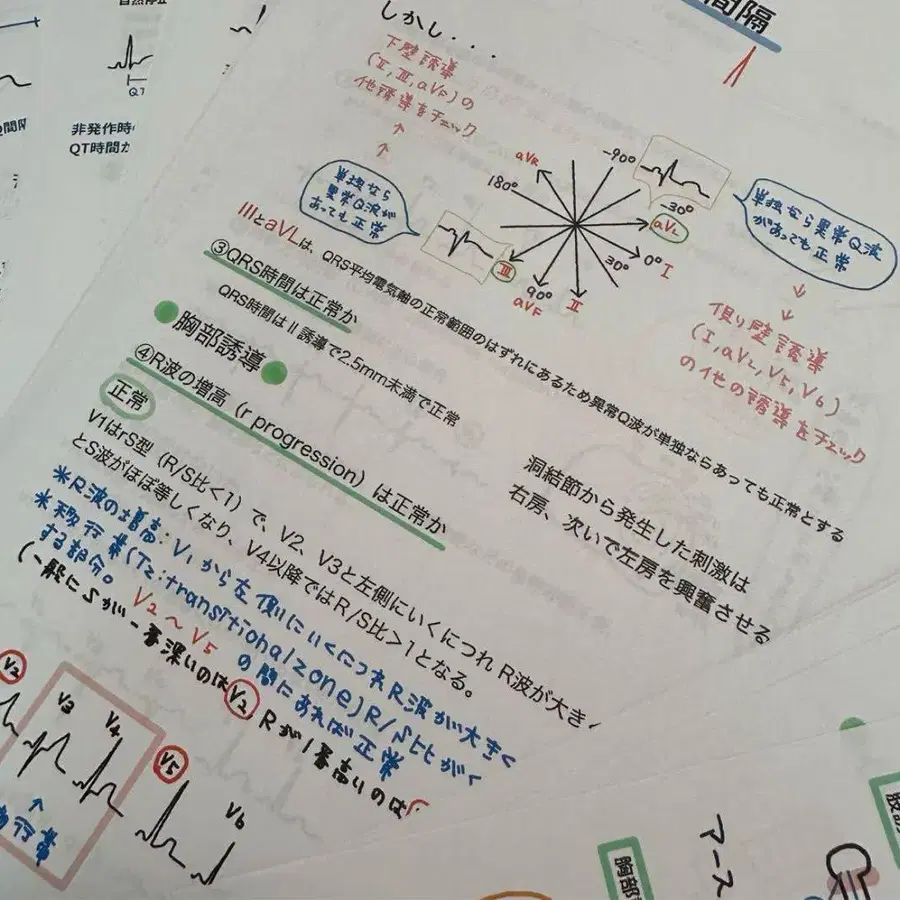 間隔
しかし...
下壁誘導
(Ⅱ,Ⅲ,aVF)の
他誘導をチェック
QT
非発作時
QT時間が
単独なら
異常Q波が
あっても正常
aVR
-90°
180°
-30°
aVL
0° Ⅰ
30°
Ⅲ
90°
aVF
Ⅱ
単独なら異常Q波
があっても正常
側壁誘導
(Ⅰ,aVL,V5,V6)
の他の誘導をチェック
ⅢとaVLは、QRS平均電気軸の正常範囲のはずれにあるため異常Q波が単独ならあっても正常とする
③QRS時間は正常か
QRS時間はⅡ誘導で2.5mm未満で正常
胸部誘導
④R波の増高（r progression）は正常か
正常
V1はrS型（R/S比<1）で、V2、V3と左側にいくにつれ R波が大き
とS波がほぼ等しくなり、V4以降ではR/S比>1となる。
*R波の増高:V1から左側にいくにつれR波が大きく
*移行帯(Tz:transitional zone)R/S比がく
する部分。V2~V5の間にあれば正常
(一般にSが一番深いのはV2,Rが1番高いのは
洞結節から発生した刺激は
右房、次いで左房を興奮させる
V2
V3
V4
V5
V6
行帯
アース
胸部